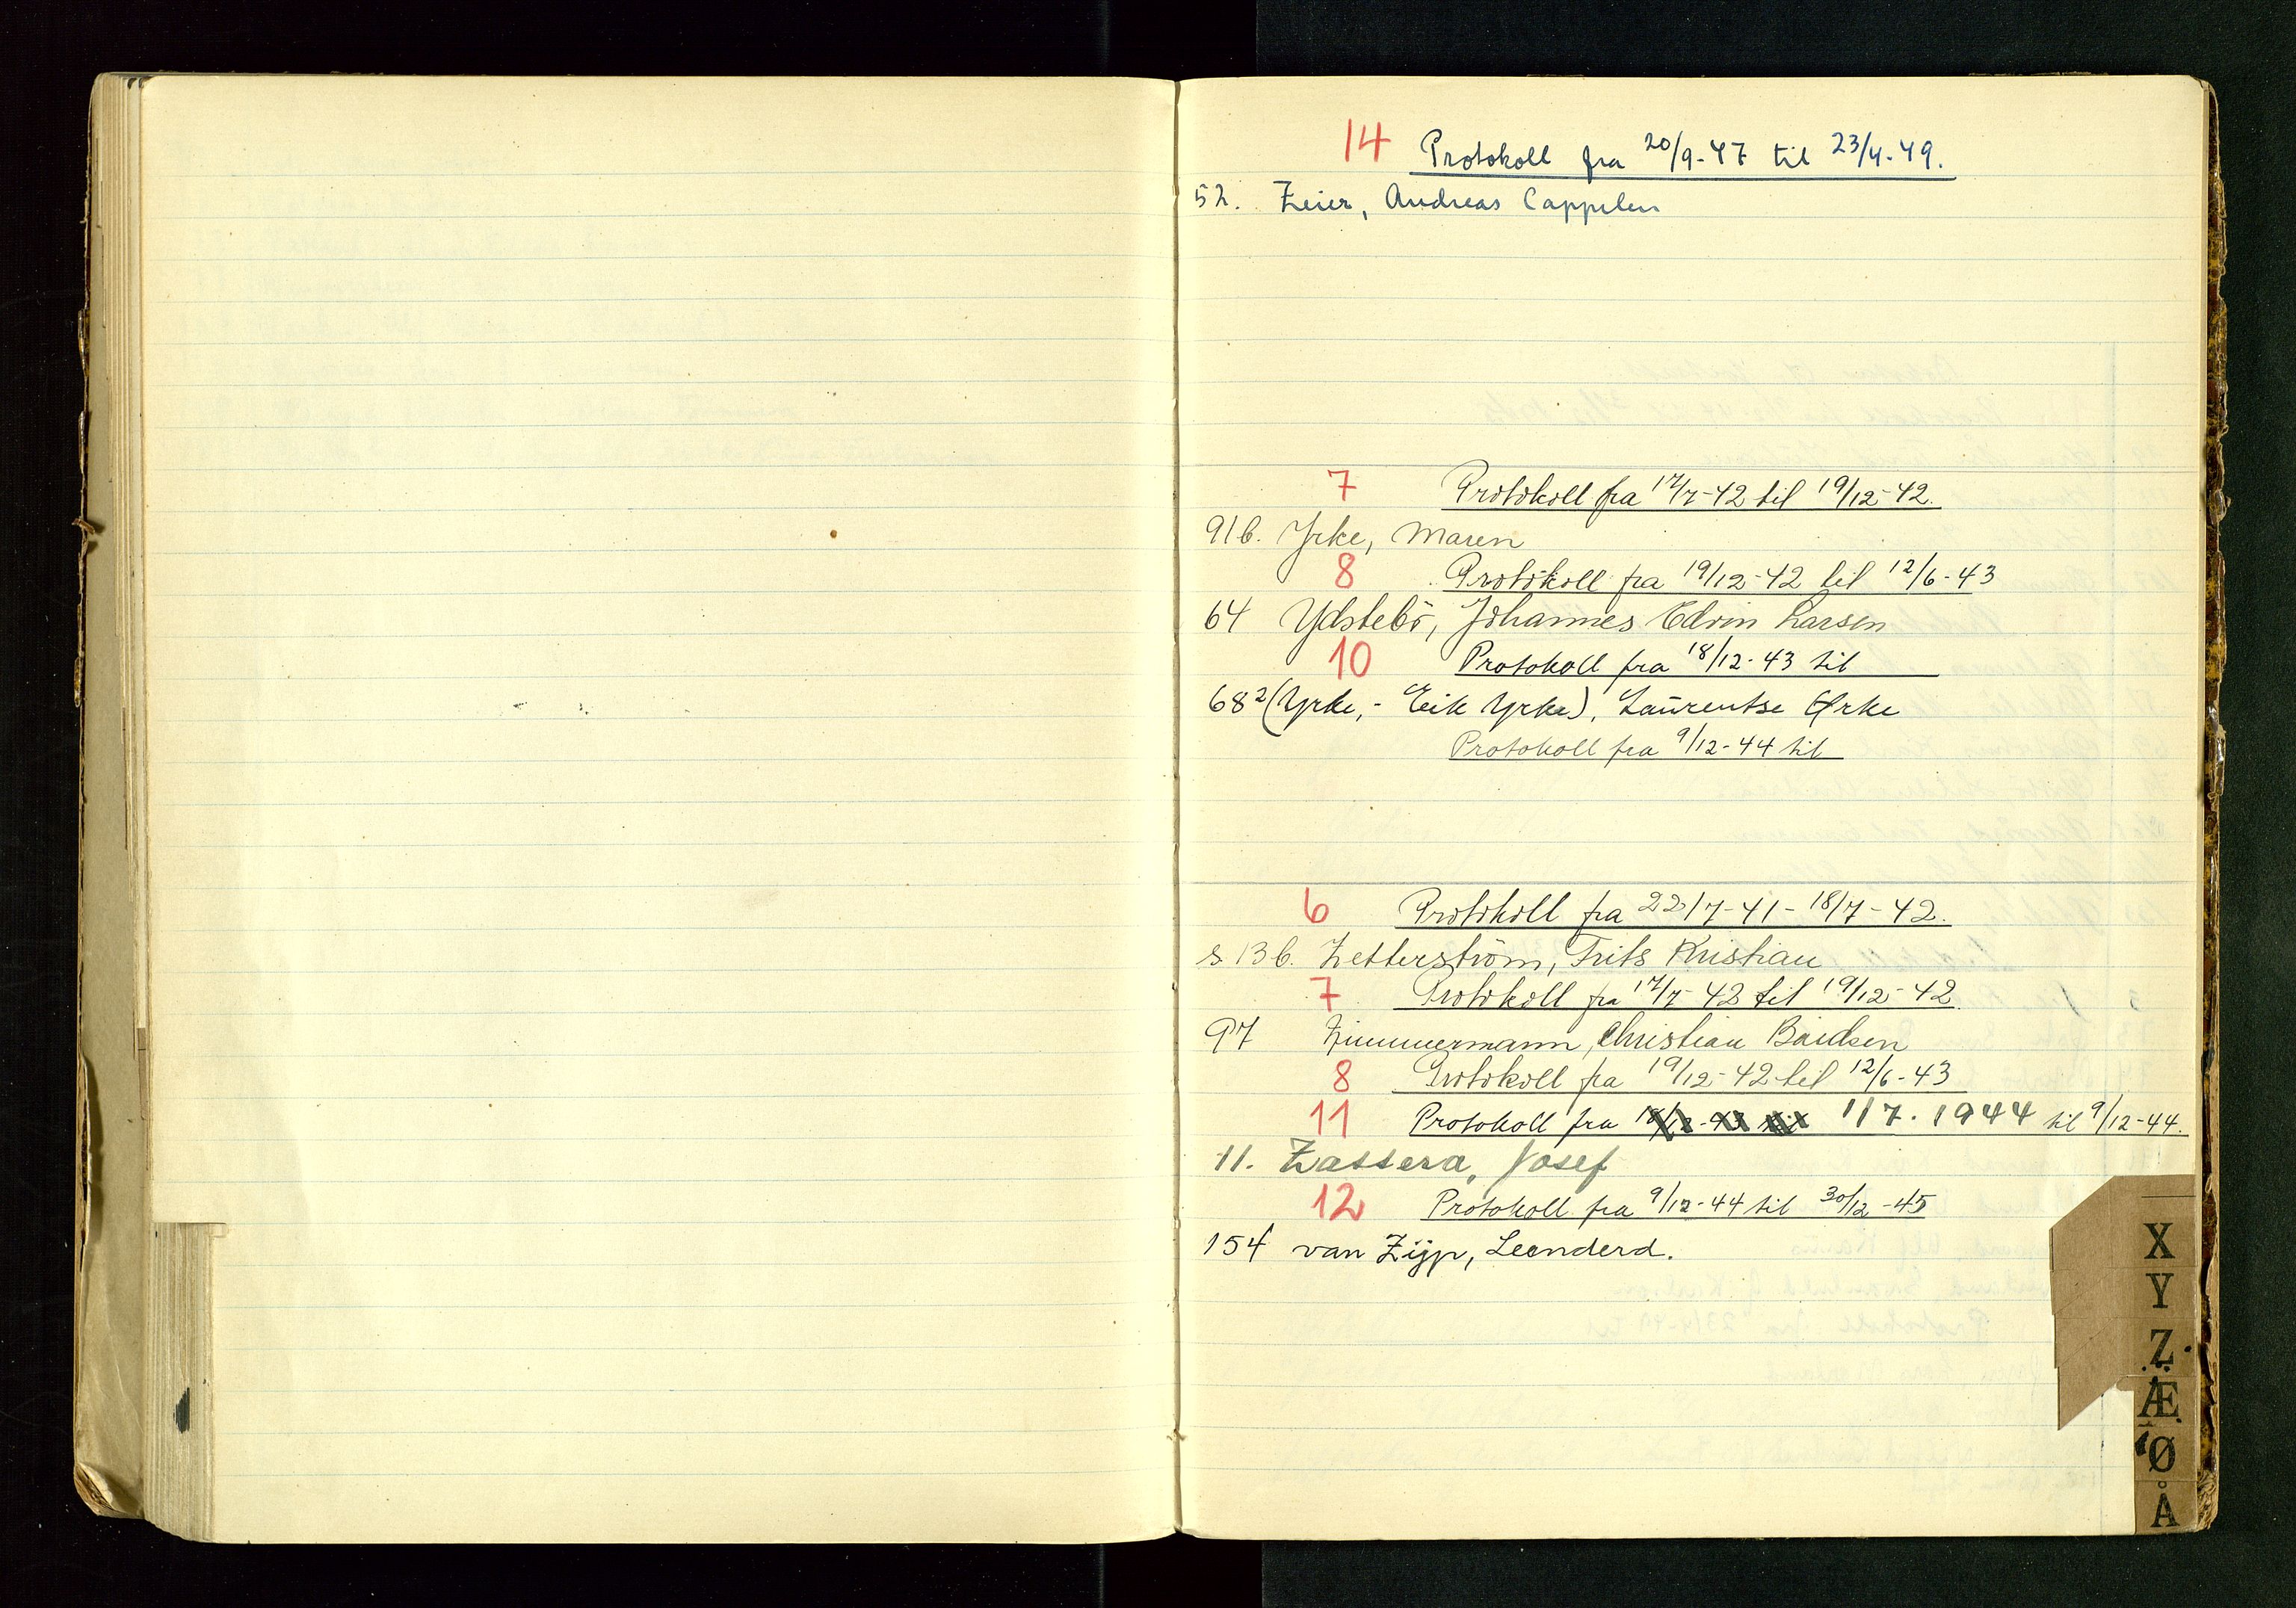 14 Protokoll fra 20/9-47 til 23/4-49.
52. Zeier, Andreas Cappelen
7 Protokoll fra 17/7-42 til 19/12-42.
91b. Yrke, Maren
8 Protokoll fra 19/12-42 til 12/6-43
64 Ydstebö, Johannes Edvin Larsen
10 Protokoll fra 18/12-43 til
68² (Yrke, - Eik Yrke), Laurentse Ørke
Protokoll fra 9/12-44 til
6 Protokoll fra 22/7-41 - 18/7-42.
s. 13b. Zetterström, Frits Kristian
7 Protokoll fra 17/7-42 til 19/12-42
97 Zimmermann, Christian Baidsen
8 Protokoll fra 19/12-42 til 12/6-43
11 Protokoll fra 1/7. 1944 til 9/12-44.
11. Zassera, Josef
12 Protokoll fra 9/12-44 til 30/12-45
154 van Zijp, Leenderd.
X
Y
Z
Æ
Ø
Å